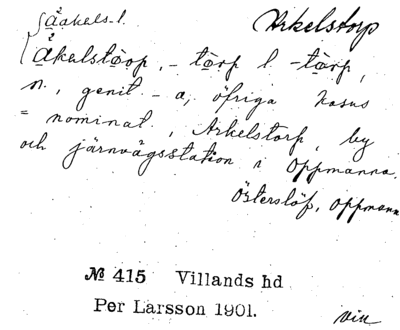 åakels. l.
Arkelstorp
åkelstorp, - torp l. - tårp,
n., genit. - a, öfriga kasus
= nominat., Arkelstorp, by
och järnvägsstation i Oppmanna.
Österslöf, Oppmanna
№ 415 Villands hd
Per Larsson 1901.